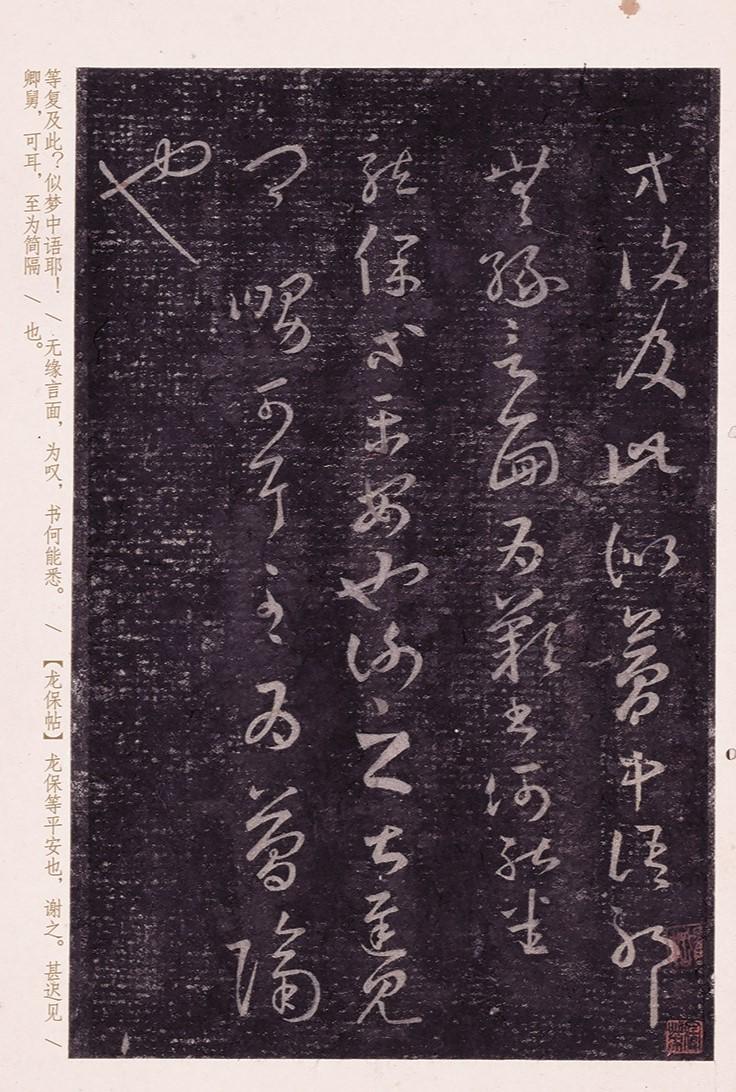 等复及此似梦中语耶
无缘言面为叹书何能悉
龙保等平安也谢之甚迟见
卿舅可耳至为简隔
也
等复及此？似梦中语耶！／无缘言面，为叹，书何能悉。／【龙保帖】龙保等平安也，谢之。甚迟见／
卿舅，可耳，至为简隔／也。